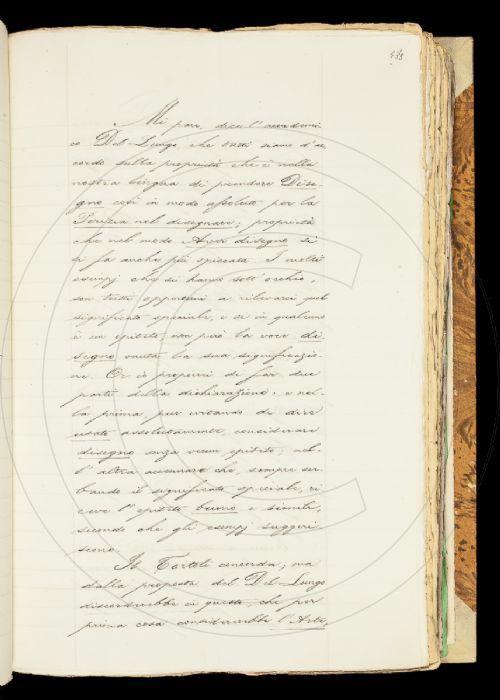 Mi pare, dice l'accademi-
co Del-Lungo, che tutti siamo d'ac
cordo sulla proprietà che è nella
nostra lingua di prendere Dise-
gno così in modo assoluto per la
Perizia nel disegnare; proprietà
che nel modo Aver disegno si
fa anche più spiccata. I molti
esempj che si hanno sott'occhio,
son tutti opportuni a rilevarci quel
significato speciale, e se in qualcuno
è un epiteto, non però la voce di-
segno muta la sua significazio-
ne. Or io proporrei di far due
parti della dichiarazione: e nel-
la prima, pur evitando di dire
usato assolutamente, considerare
disegno senza verun epiteto; nel-
l'altra accennare che, sempre ser-
bando il significato speciale, ri
ceve l'epiteto buono e simili,
secondo che gli esempj suggeri-
scono.
Il Tortoli concorda; ma
dalla proposta del Del-Lungo
discorderebbe in questo, che per
prima cosa considererebbe l'Arte,